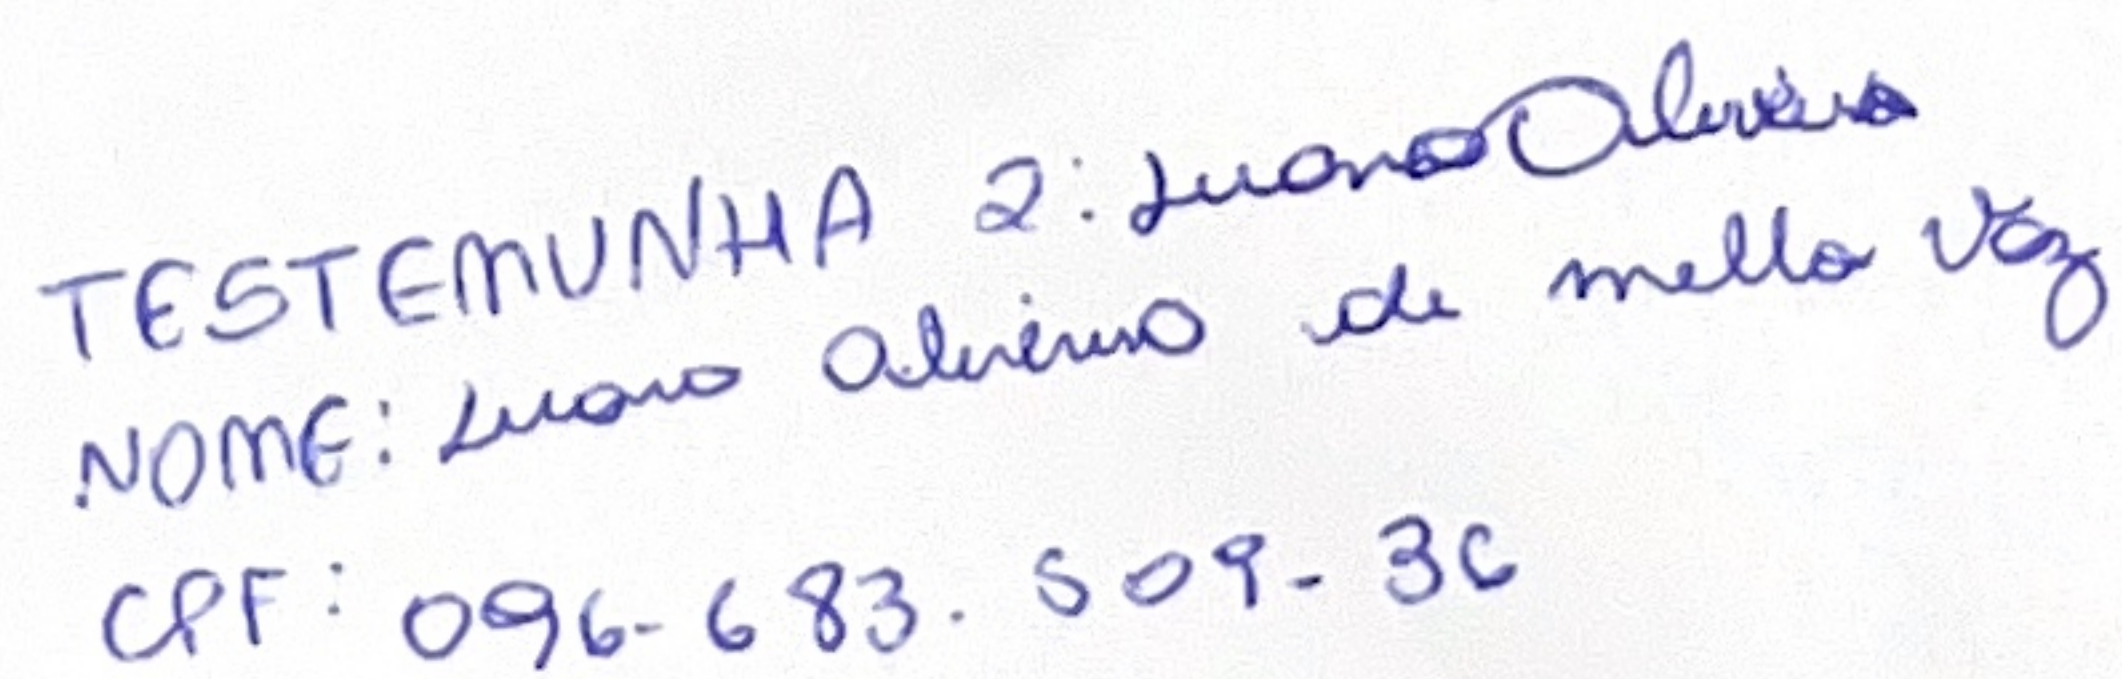 TESTEMUNHA 2: Luana Oliveira
NOME: Luana Oliveira de mello Vaz
CPF: 096-683.509-36